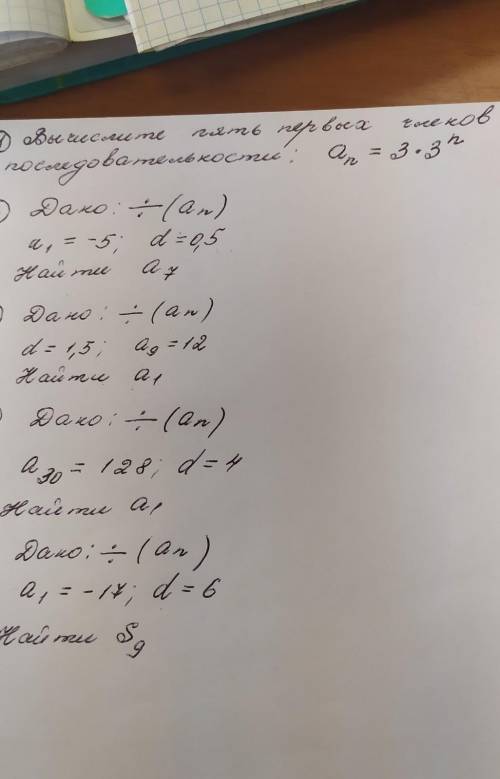 1) Вычислите пять первых членов
последовательности: aₙ = 3 · 3ⁿ
) Дано: ÷ (aₙ)
a₁ = -5; d = 0,5
Найти a₇
) Дано: ÷ (aₙ)
d = 1,5; a₉ = 12
Найти a₁
) Дано: ÷ (aₙ)
a₃₀ = 128; d = 4
Найти a₁
Дано: ÷ (aₙ)
a₁ = -17; d = 6
Найти S₉